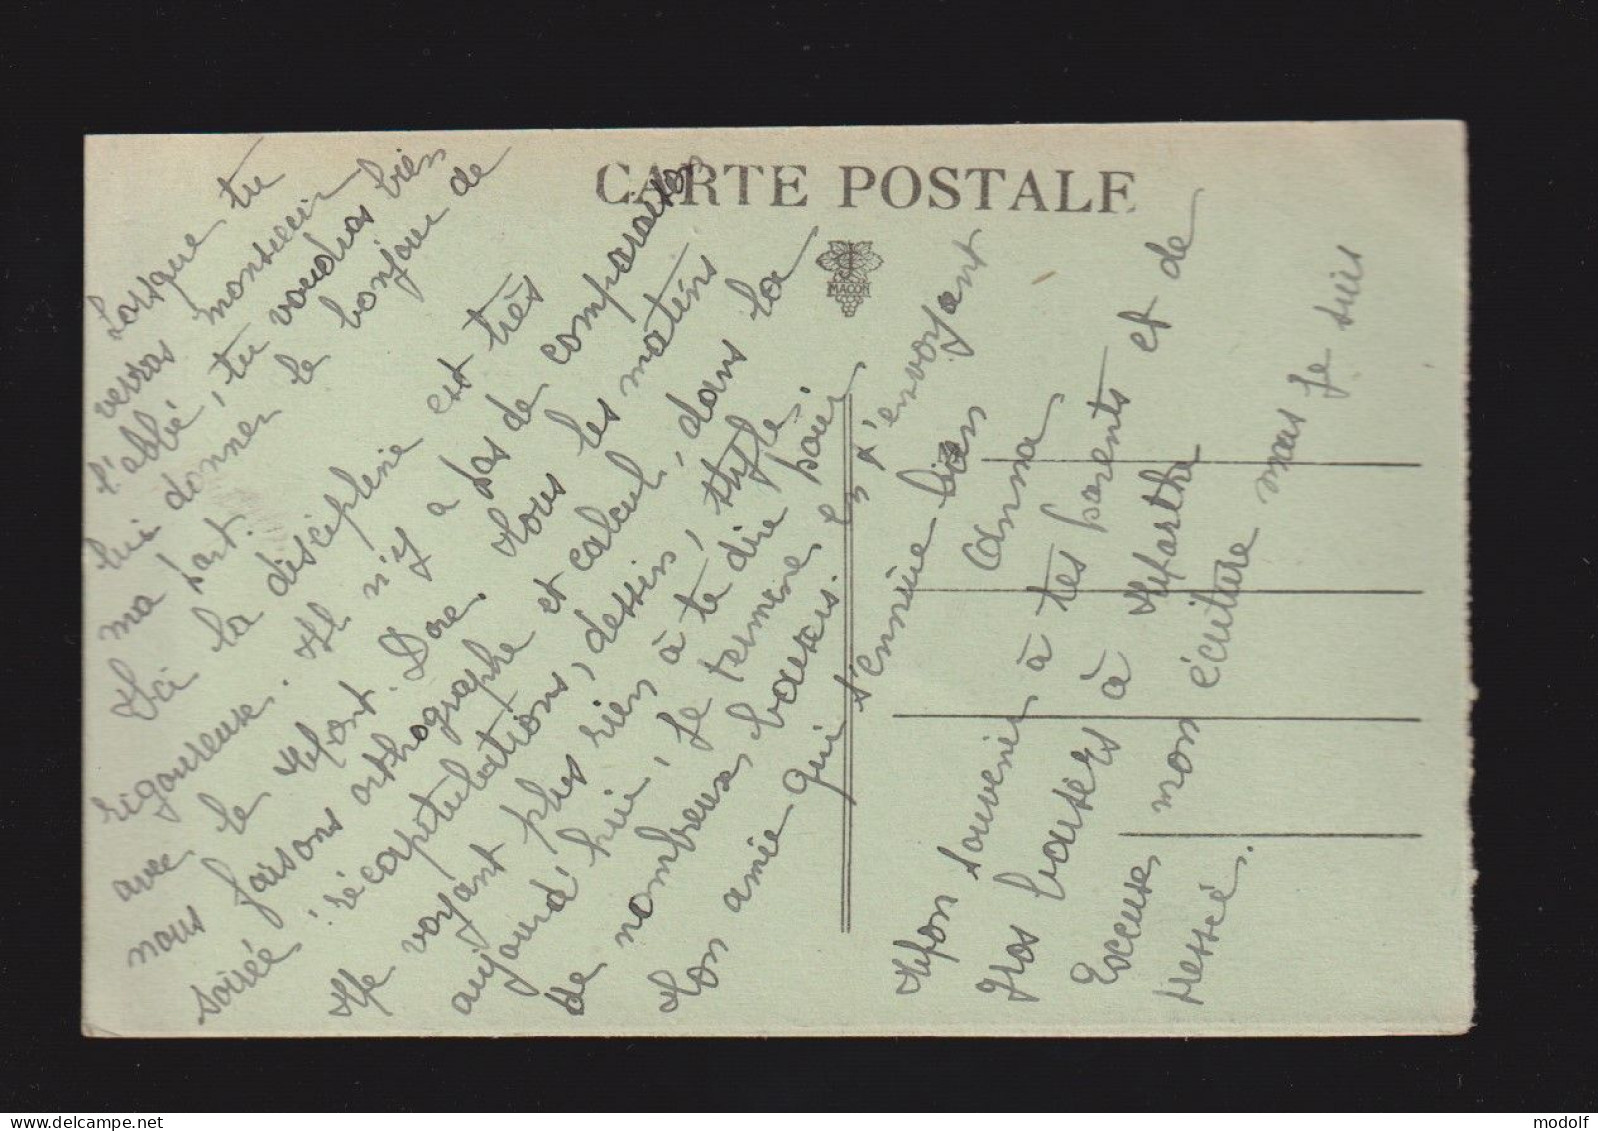 CARTE POSTALE
MACON
Lorsque tu
verras monsieur
l'abbé, tu voudras bien
lui donner le bonjour de
ma part.
Ici la discipline est très
rigoureuse. Il n'y a pas de comparaison
avec le Mont. Dore. Tous les matins
nous faisons orthographe et calcul, dans la
soirée: récapitulations, dessin, style.
Ne voyant plus rien à te dire pour
aujourd'hui, je termine en t'envoyant
de nombreux baisers.
Ton amie qui s'ennuie bien
Anna
Mon souvenir à tes parents et de
gros baisers à Marthe
Excuse mon écriture mais je suis
pressé.
modolf